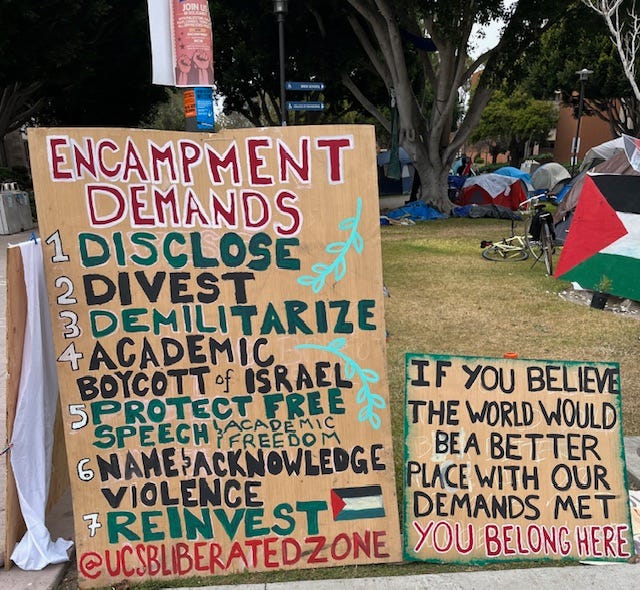 JOIN US
ENCAMPMENT
DEMANDS
1 DISCLOSE
2 DIVEST
3 DEMILITARIZE
4 ACADEMIC
BOYCOTT of ISRAEL
5 PROTECT FREE
SPEECH & ACADEMIC
FREEDOM
6 NAME & ACKNOWLEDGE
VIOLENCE
7 REINVEST
@UCSBLIBERATEDZONE
IF YOU BELIEVE
THE WORLD WOULD
BE A BETTER
PLACE WITH OUR
DEMANDS MET
YOU BELONG HERE